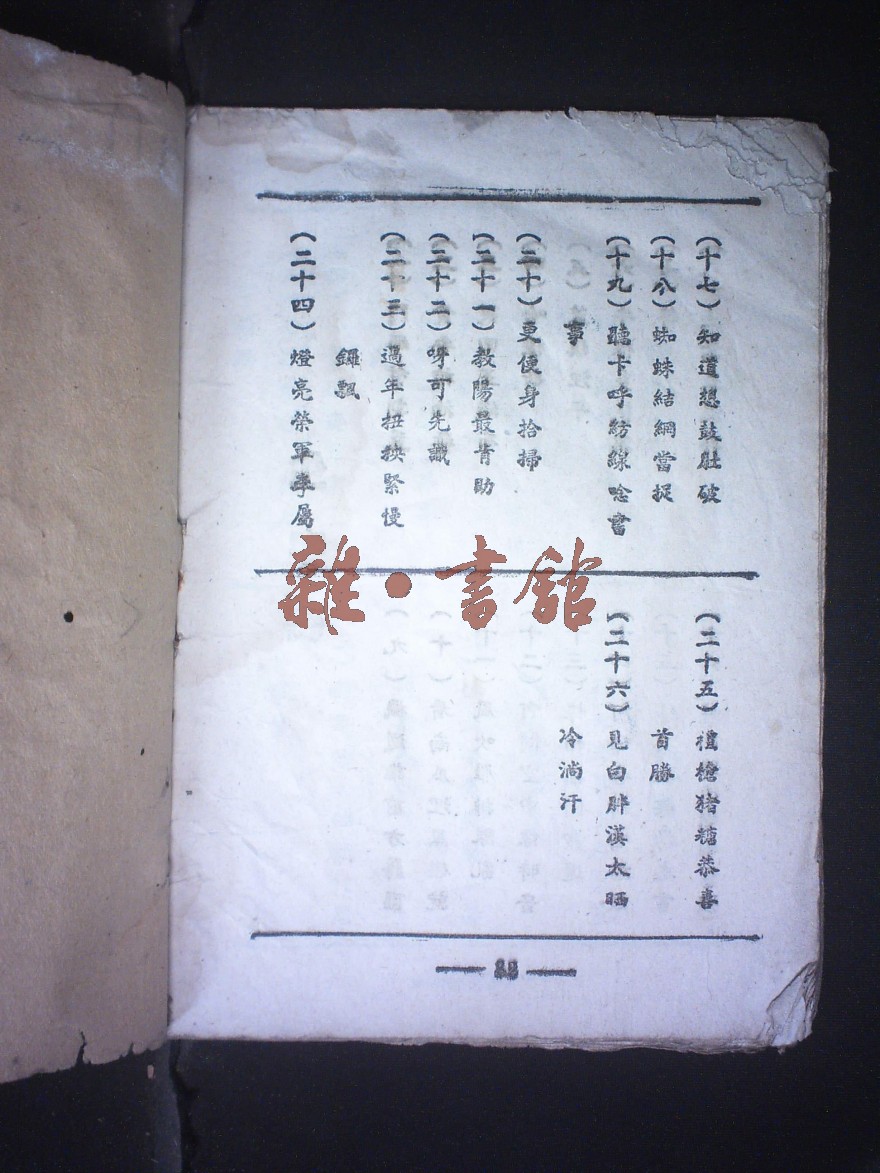 （十七）知道想鼓肚破
（十八）蜘蛛結網當捉
（十九）聽卡呼紡線唸書
事
（二十）更便身拾掃
（二十一）教陽最肯助
（二十二）呀可先識
（二十三）過年扭秧緊慢
鑼瓢
（二十四）燈亮榮軍李屬
（二十五）槍猪糖恭喜
首勝
（二十六）見白胖漢太晒
冷淌汗
雜·書館